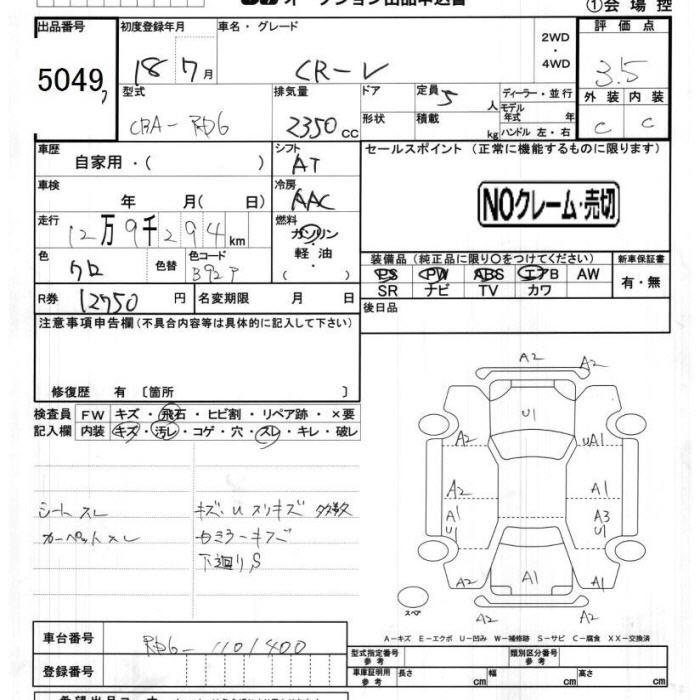 オークション出品申込書
①会場控
出品番号 初度登録年月 車名・グレード 評価点
5049 18 7月 CR-V 2WD・4WD 3.5
型式 排気量 ドア 定員 5人 ディーラー・並行
外装 内装
CBA-RD6 2350cc 形状 積載 kg モデル年式 年
C C
ハンドル 左・右
車歴 シフト セールスポイント(正常に機能するものに限ります)
自家用・( ) AT
車検 冷房
年 月( 日) AAC NOクレーム・売切
走行 燃料
12万9千294km ガソリン・軽油・( )
色 色替 色コード 装備品(純正品に限り〇をつけてください) 新車保証書
クロ B92P PS PW ABS エアB AW 有・無
SR ナビ TV カワ
R券 12750円 名変期限 月 日 後日品
注意事項申告欄(不具合内容等は具体的に記入して下さい)
修復歴 有〔箇所 〕
検査員 FW キズ・飛石・ヒビ割・リペア跡・×要
記入欄 内装 キズ・汚レ・コゲ・穴・スレ・キレ・破レ
シートスレ キズ,Uスリキズ多数
カーペットスレ セミラーキズ
下廻りS
A2 A2
U1
A2 UA1
A2 A1
A1 A3
U1 U1
A2 A1 A2
A2 A2
スペア
A-キズ E-エクボ U-凹み W-補修跡 S-サビ C-腐食 XX-交換済
車台番号 RD6-1101400
型式指定番号 参考 類別区分番号 参考
登録番号
車庫証明用 参考 長さ cm 幅 cm 高さ cm